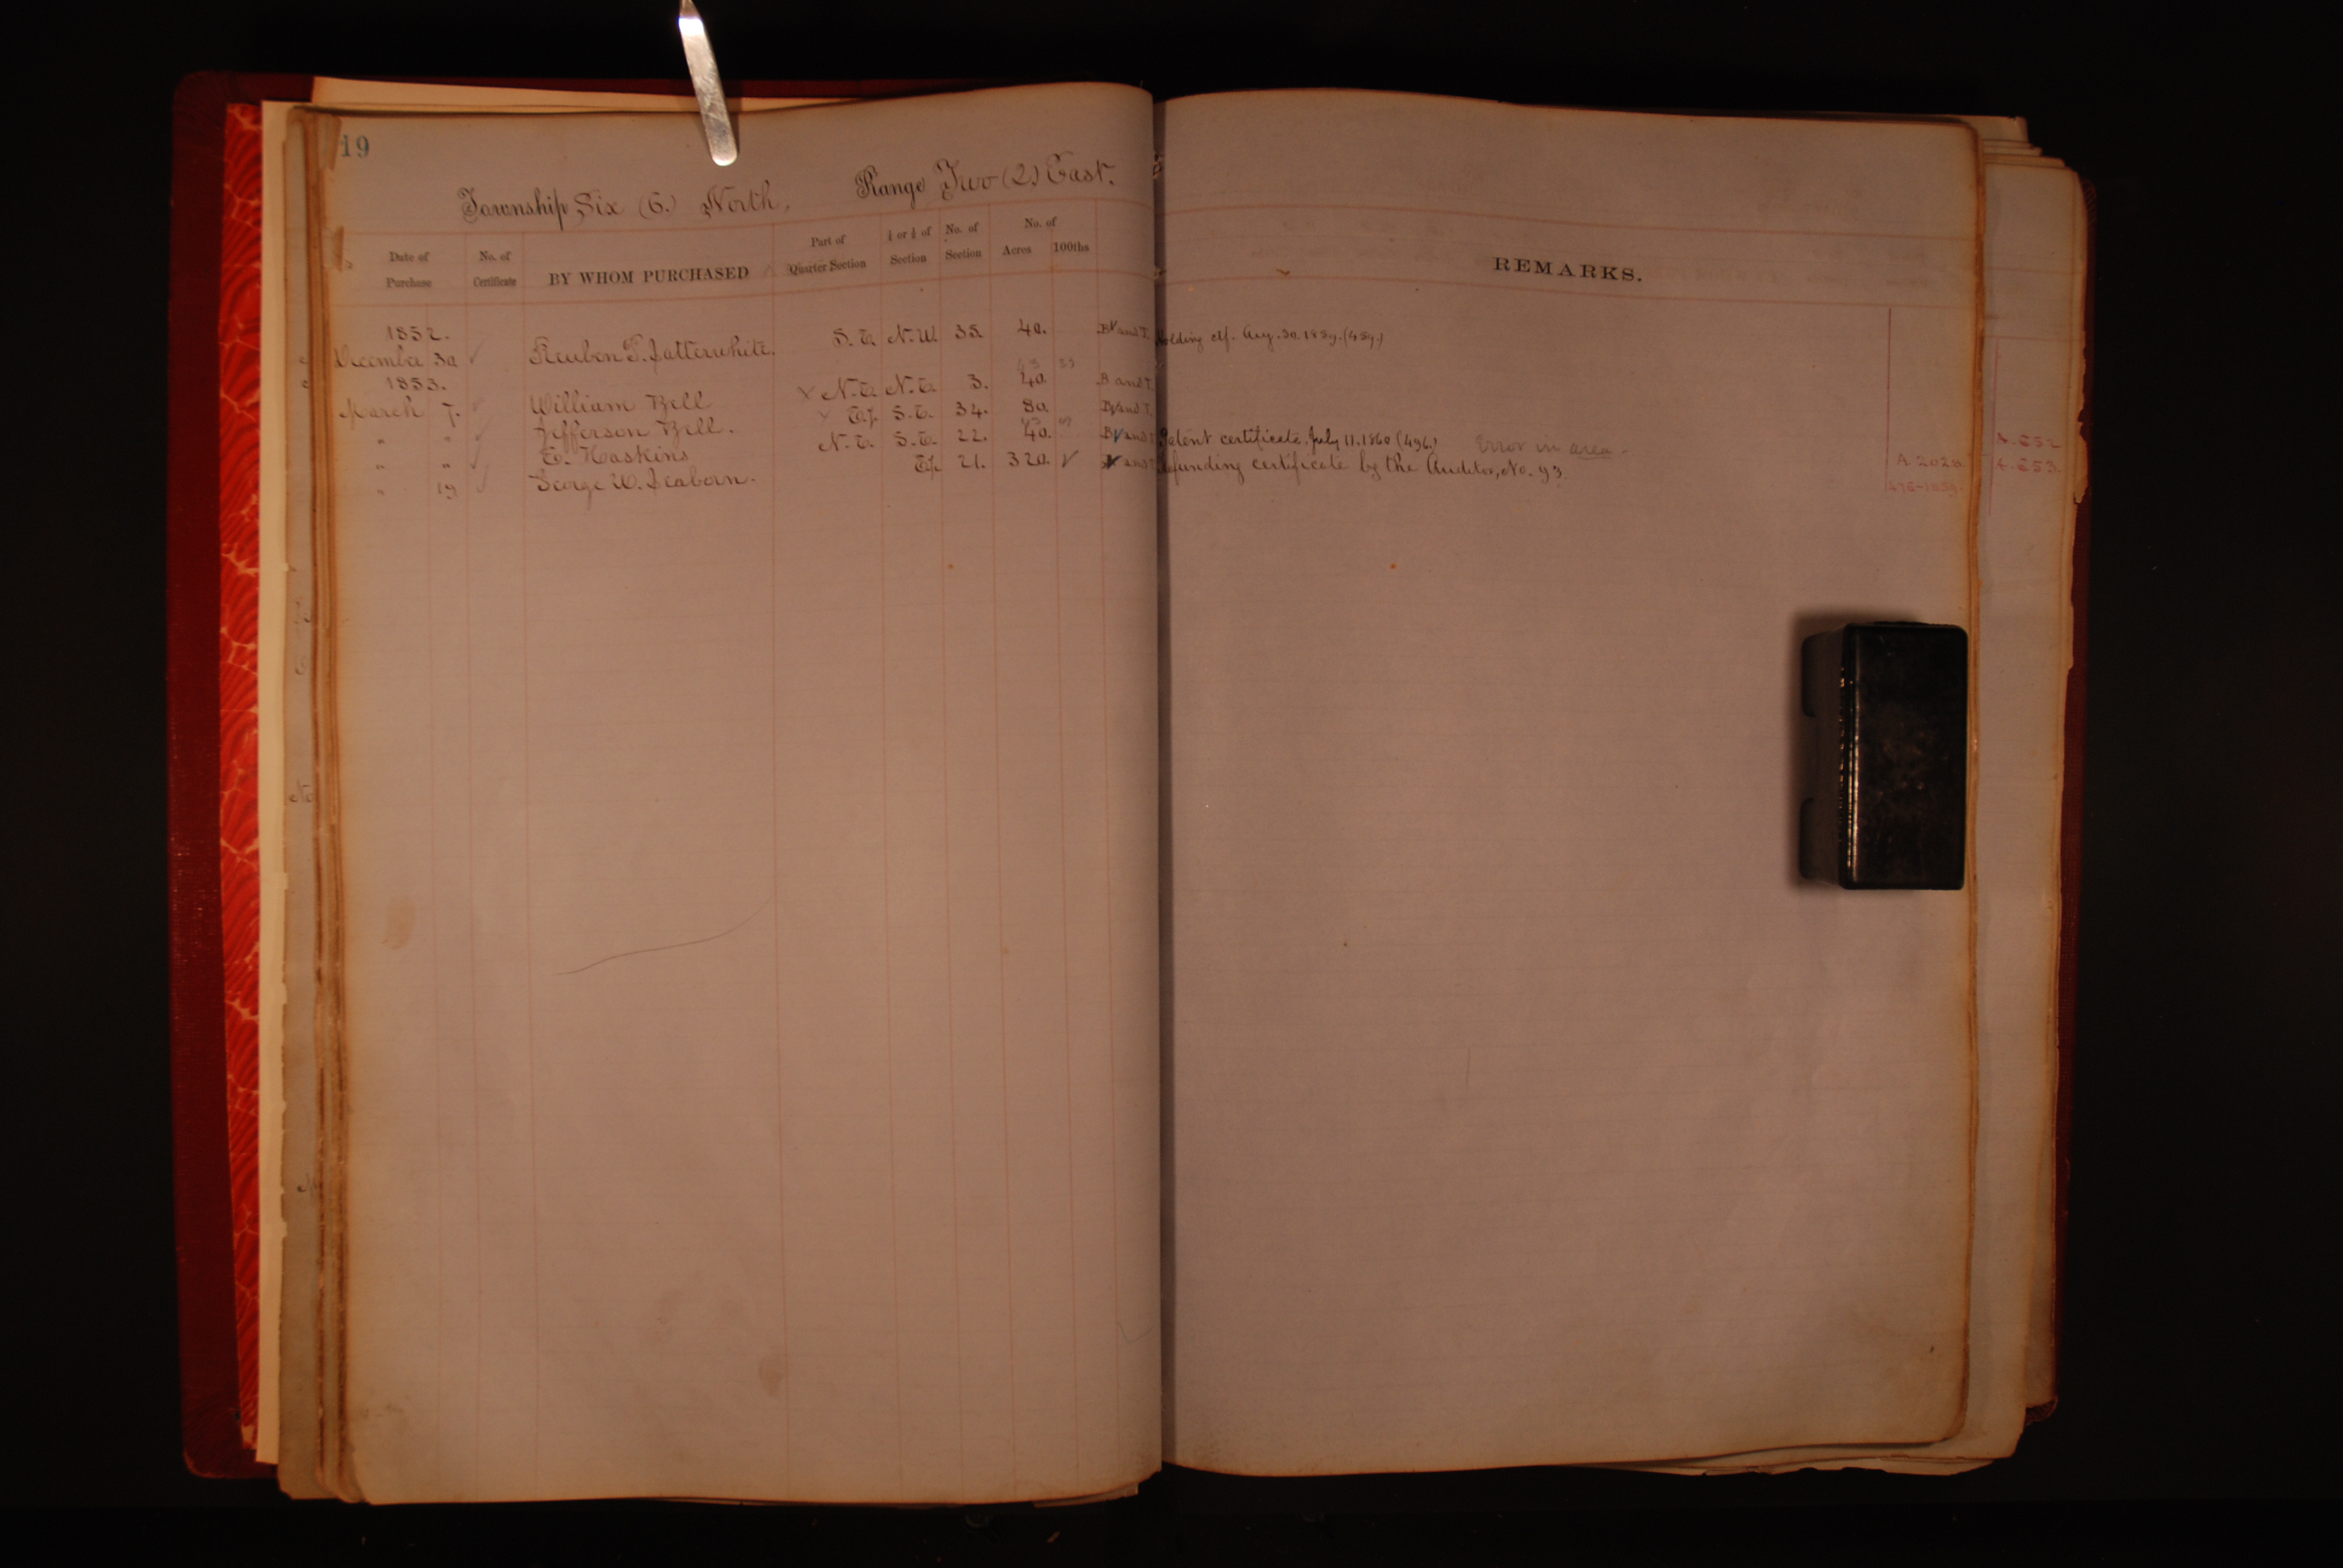 19
Township Six (6.) North, Range Two (2) East.
Date of Purchase No. of Certificate BY WHOM PURCHASED Part of Quarter Section ½ or ¼ of Section No. of Section No. of Acres 100ths REMARKS.
1852.
December 30 Reuben P. Satterwhite. S.E. N.W. 35. 40. B and T. Holding ctf. Aug. 30. 1859. (459.)
1853.
March 7. William Bell N.E. N.E. 3. 40. B and T.
" " Jefferson Bell. E½ S.E. 34. 80. B and T.
" " E. Haskins N.E. S.E. 22. 40. B and T Patent certificate, July 11. 1860 (496.) Error in area - A. 652
" 19 George W. Seaborn. E½ 21. 320. and T Refunding certificate by the Auditor, No. 93. A. 2028 A. 653